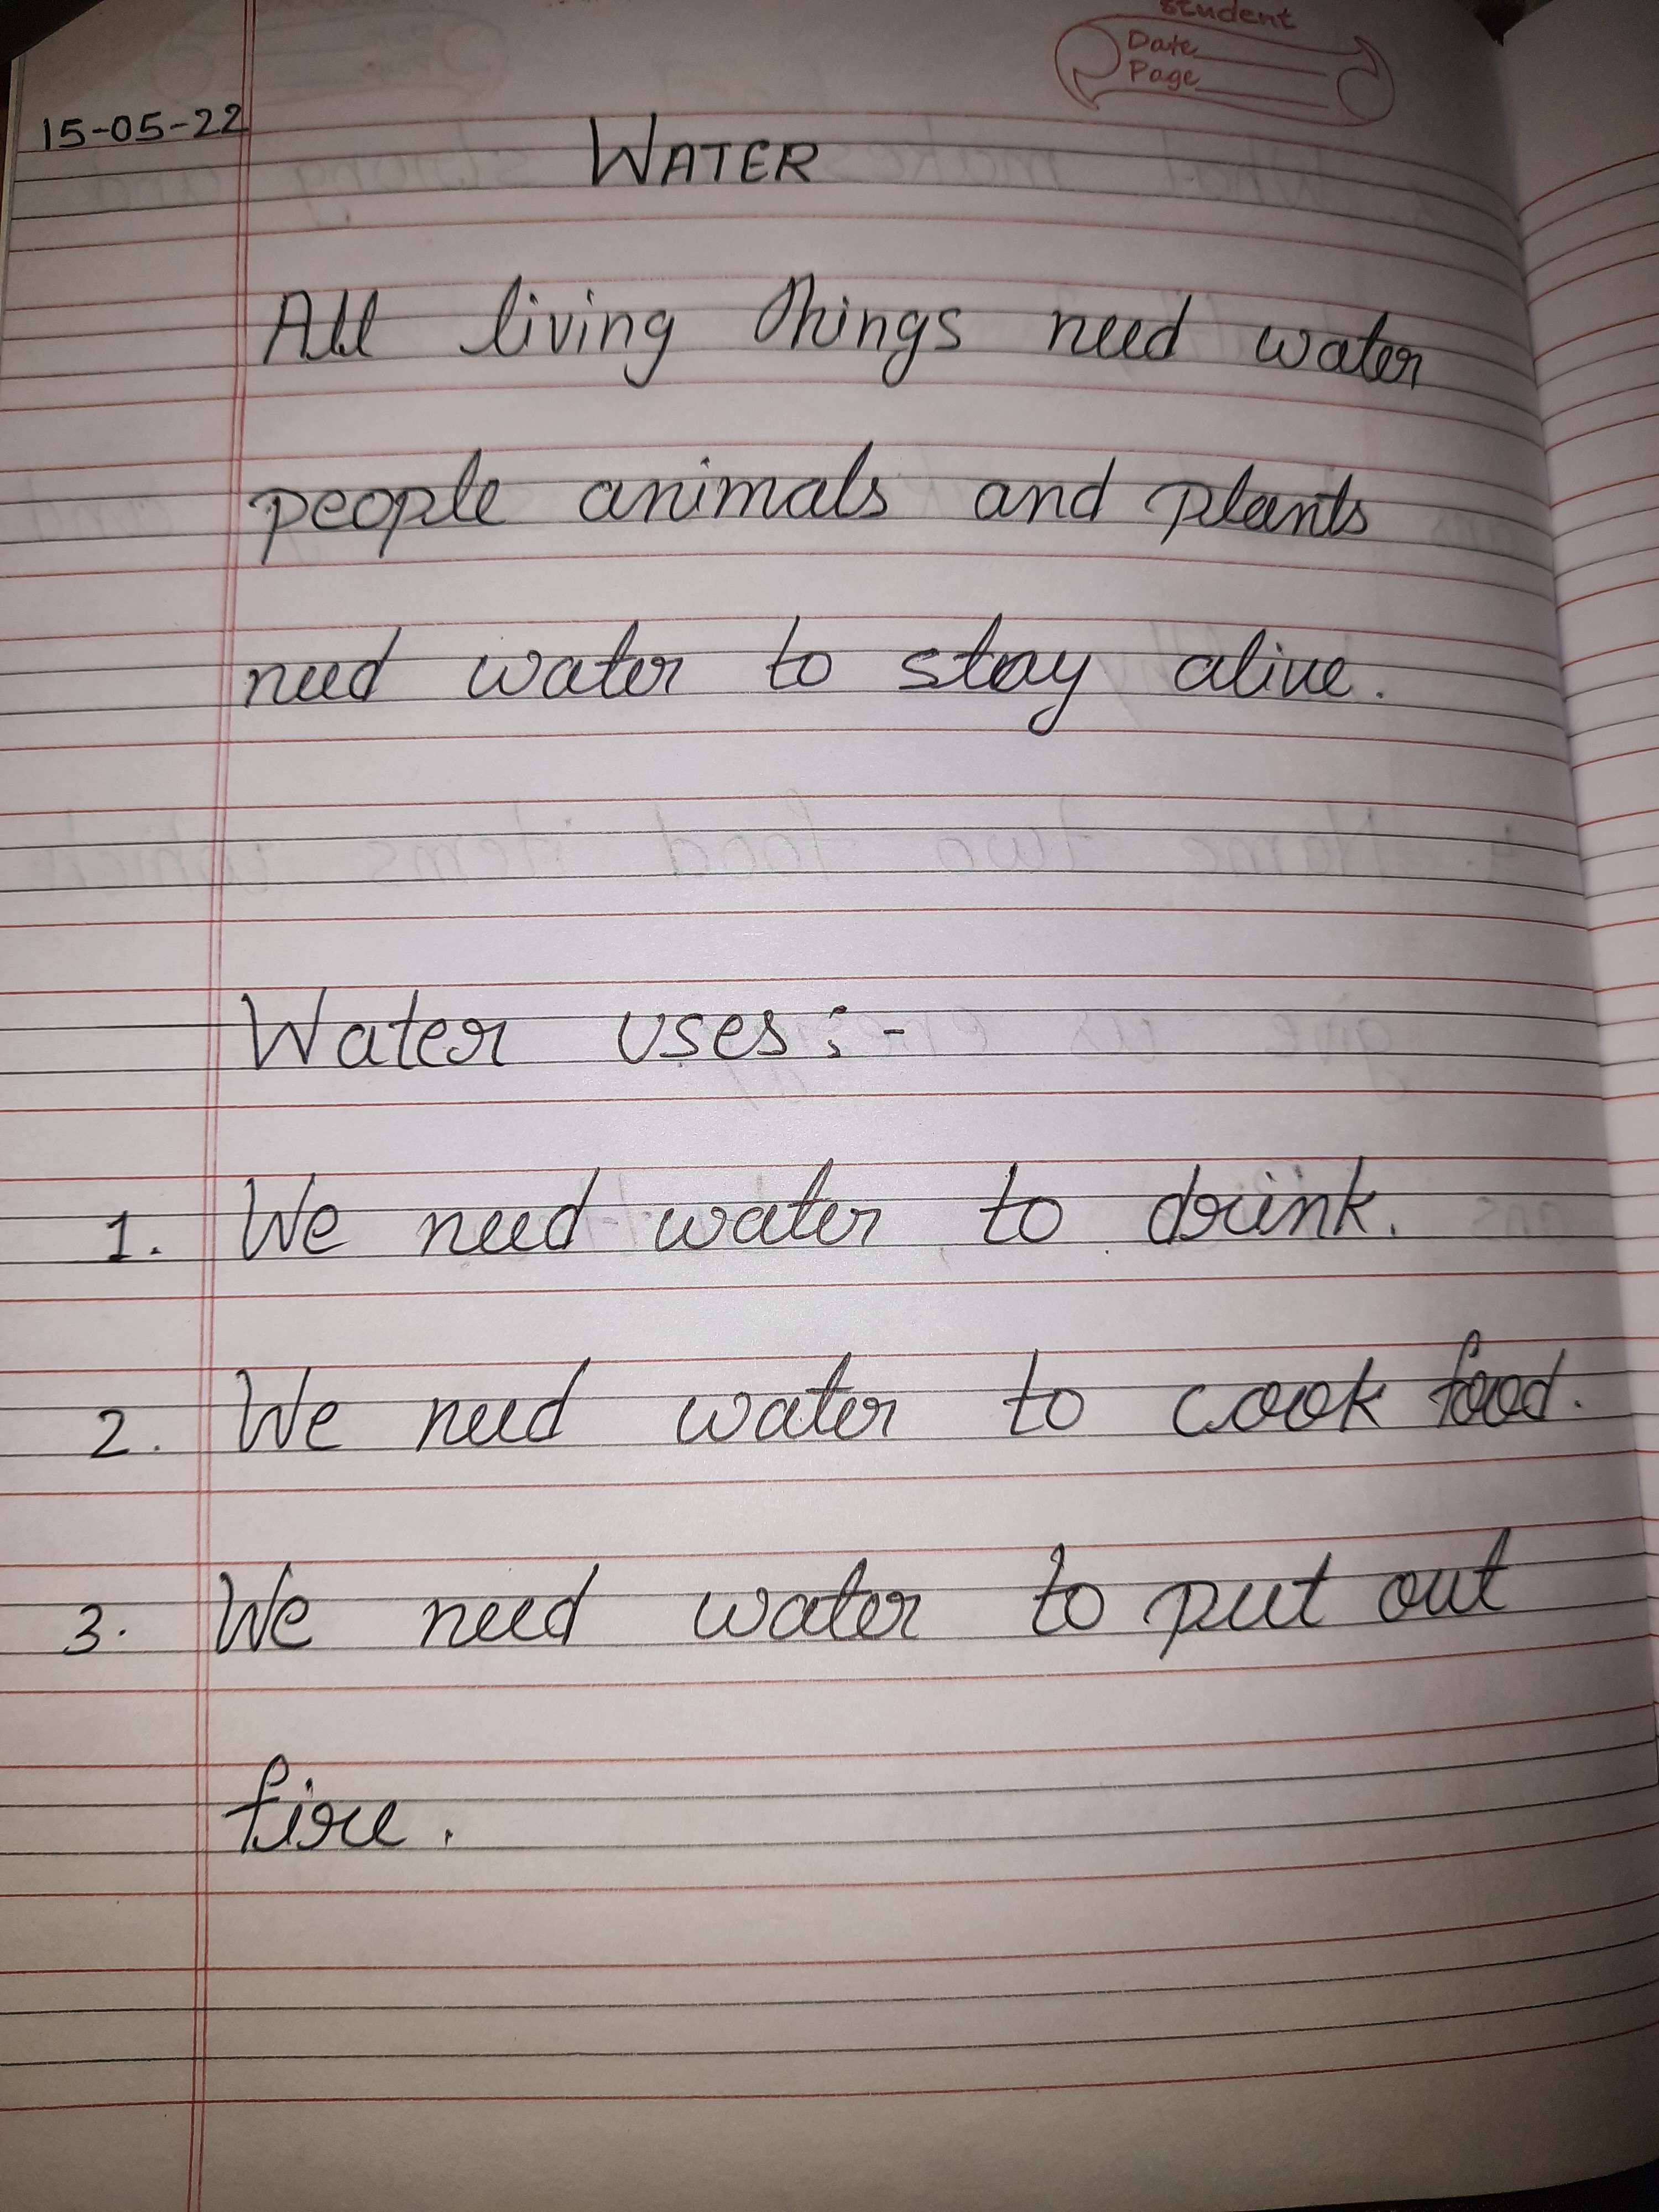 student
Date
Page
15-05-22
WATER
All living things need water
people animals and plants
need water to stay alive.
Water uses:-
1. We need water to drink.
2. We need water to cook food.
3. We need water to put out
fire.